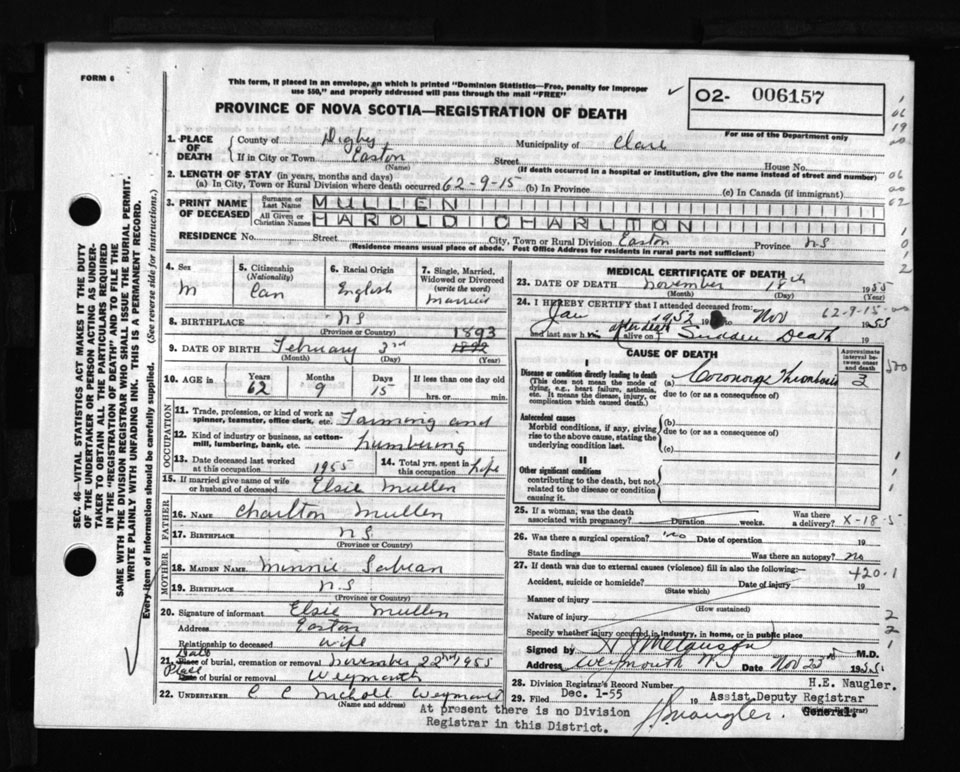 FORM 6
This form, if placed in an envelope, on which is printed "Dominion Statistics—Free, penalty for improper
use $50," and properly addressed will pass through the mail "FREE"
PROVINCE OF NOVA SCOTIA—REGISTRATION OF DEATH
02- 006157
For use of the Department only
1. PLACE OF DEATH County of Digby Municipality of Clare
If in City or Town Easton Street House No.
(Name) (If death occurred in a hospital or institution, give the name instead of street and number)
2. LENGTH OF STAY (in years, months and days)
(a) In City, Town or Rural Division where death occurred 62-9-15 (b) In Province (c) In Canada (if immigrant)
3. PRINT NAME OF DECEASED Surname or Last Name MULLEN
All Given or Christian Names HAROLD CHARLTON
RESIDENCE No. Street City, Town or Rural Division Easton Province NS
(Residence means usual place of abode. Post Office Address for residents in rural parts not sufficient)
4. Sex M
5. Citizenship (Nationality) Can
6. Racial Origin English
7. Single, Married, Widowed or Divorced (write the word) Married
8. BIRTHPLACE NS
(Province or Country)
1893
9. DATE OF BIRTH February 3rd 1892
(Month) (Day) (Year)
10. AGE in Years 62 Months 9 Days 15 If less than one day old hrs. or min.
OCCUPATION
11. Trade, profession, or kind of work as spinner, teamster, office clerk, etc. Farming and
12. Kind of industry or business, as cotton-mill, lumbering, bank, etc. Lumbering
13. Date deceased last worked at this occupation 1955
14. Total yrs. spent in this occupation Life
15. If married give name of wife or husband of deceased Elsie Mullen
FATHER
16. NAME Charlton Mullen
17. BIRTHPLACE NS
(Province or Country)
MOTHER
18. MAIDEN NAME Minnie Sabean
19. BIRTHPLACE N.S
(Province or Country)
20. Signature of informant Elsie Mullen
Address Easton
Relationship to deceased wife
21. Date Place of burial, cremation or removal November 22nd 1955
Place Date of burial or removal Weymouth
22. UNDERTAKER C C Nicholl Weymouth
(Name and address)
MEDICAL CERTIFICATE OF DEATH
23. DATE OF DEATH November 18th 1955
(Month) (Day) (Year)
24. I HEREBY CERTIFY that I attended deceased from:
Jan 1952 to Nov 1955
62-9-15
and last saw h im alive on after death Sudden Death
CAUSE OF DEATH
Approximate interval between onset and death
I
Disease or condition directly leading to death
(This does not mean the mode of dying, e.g., heart failure, asthenia, etc. It means the disease, injury, or complication which caused death.)
(a) Coronary Thrombosis 3
due to (or as a consequence of)
Antecedent causes
Morbid conditions, if any, giving rise to the above cause, stating the underlying condition last.
(b)
due to (or as a consequence of)
(c)
II
Other significant conditions
contributing to the death, but not related to the disease or condition causing it.
25. If a woman, was the death associated with pregnancy? Duration weeks. Was there a delivery?
X-18-5
26. Was there a surgical operation? no Date of operation 19
State findings Was there an autopsy? no
27. If death was due to external causes (violence) fill in also the following:-
420.1
Accident, suicide or homicide? Date of injury 19
(State which)
Manner of injury
(How sustained)
Nature of injury
Specify whether injury occurred in industry, in home, or in public place
Signed by M.D.
Address Weymouth NS Date Nov 23rd 1955
28. Division Registrar's Record Number H.E. Naugler.
29. Filed Dec. 1-55 19 Assist Deputy Registrar
(Division Registrar)
General.
At present there is no Division
Registrar in this District.
SEC. 46—VITAL STATISTICS ACT MAKES IT THE DUTY
OF THE UNDERTAKER OR PERSON ACTING AS UNDER-
TAKER TO OBTAIN ALL THE PARTICULARS REQUIRED
IN THE "REGISTRATION OF DEATH" AND TO FILE THE
SAME WITH THE DIVISION REGISTRAR WHO SHALL ISSUE THE BURIAL PERMIT.
WRITE PLAINLY WITH UNFADING INK. THIS IS A PERMANENT RECORD.
Every item of information should be carefully supplied. (See reverse side for instructions.)